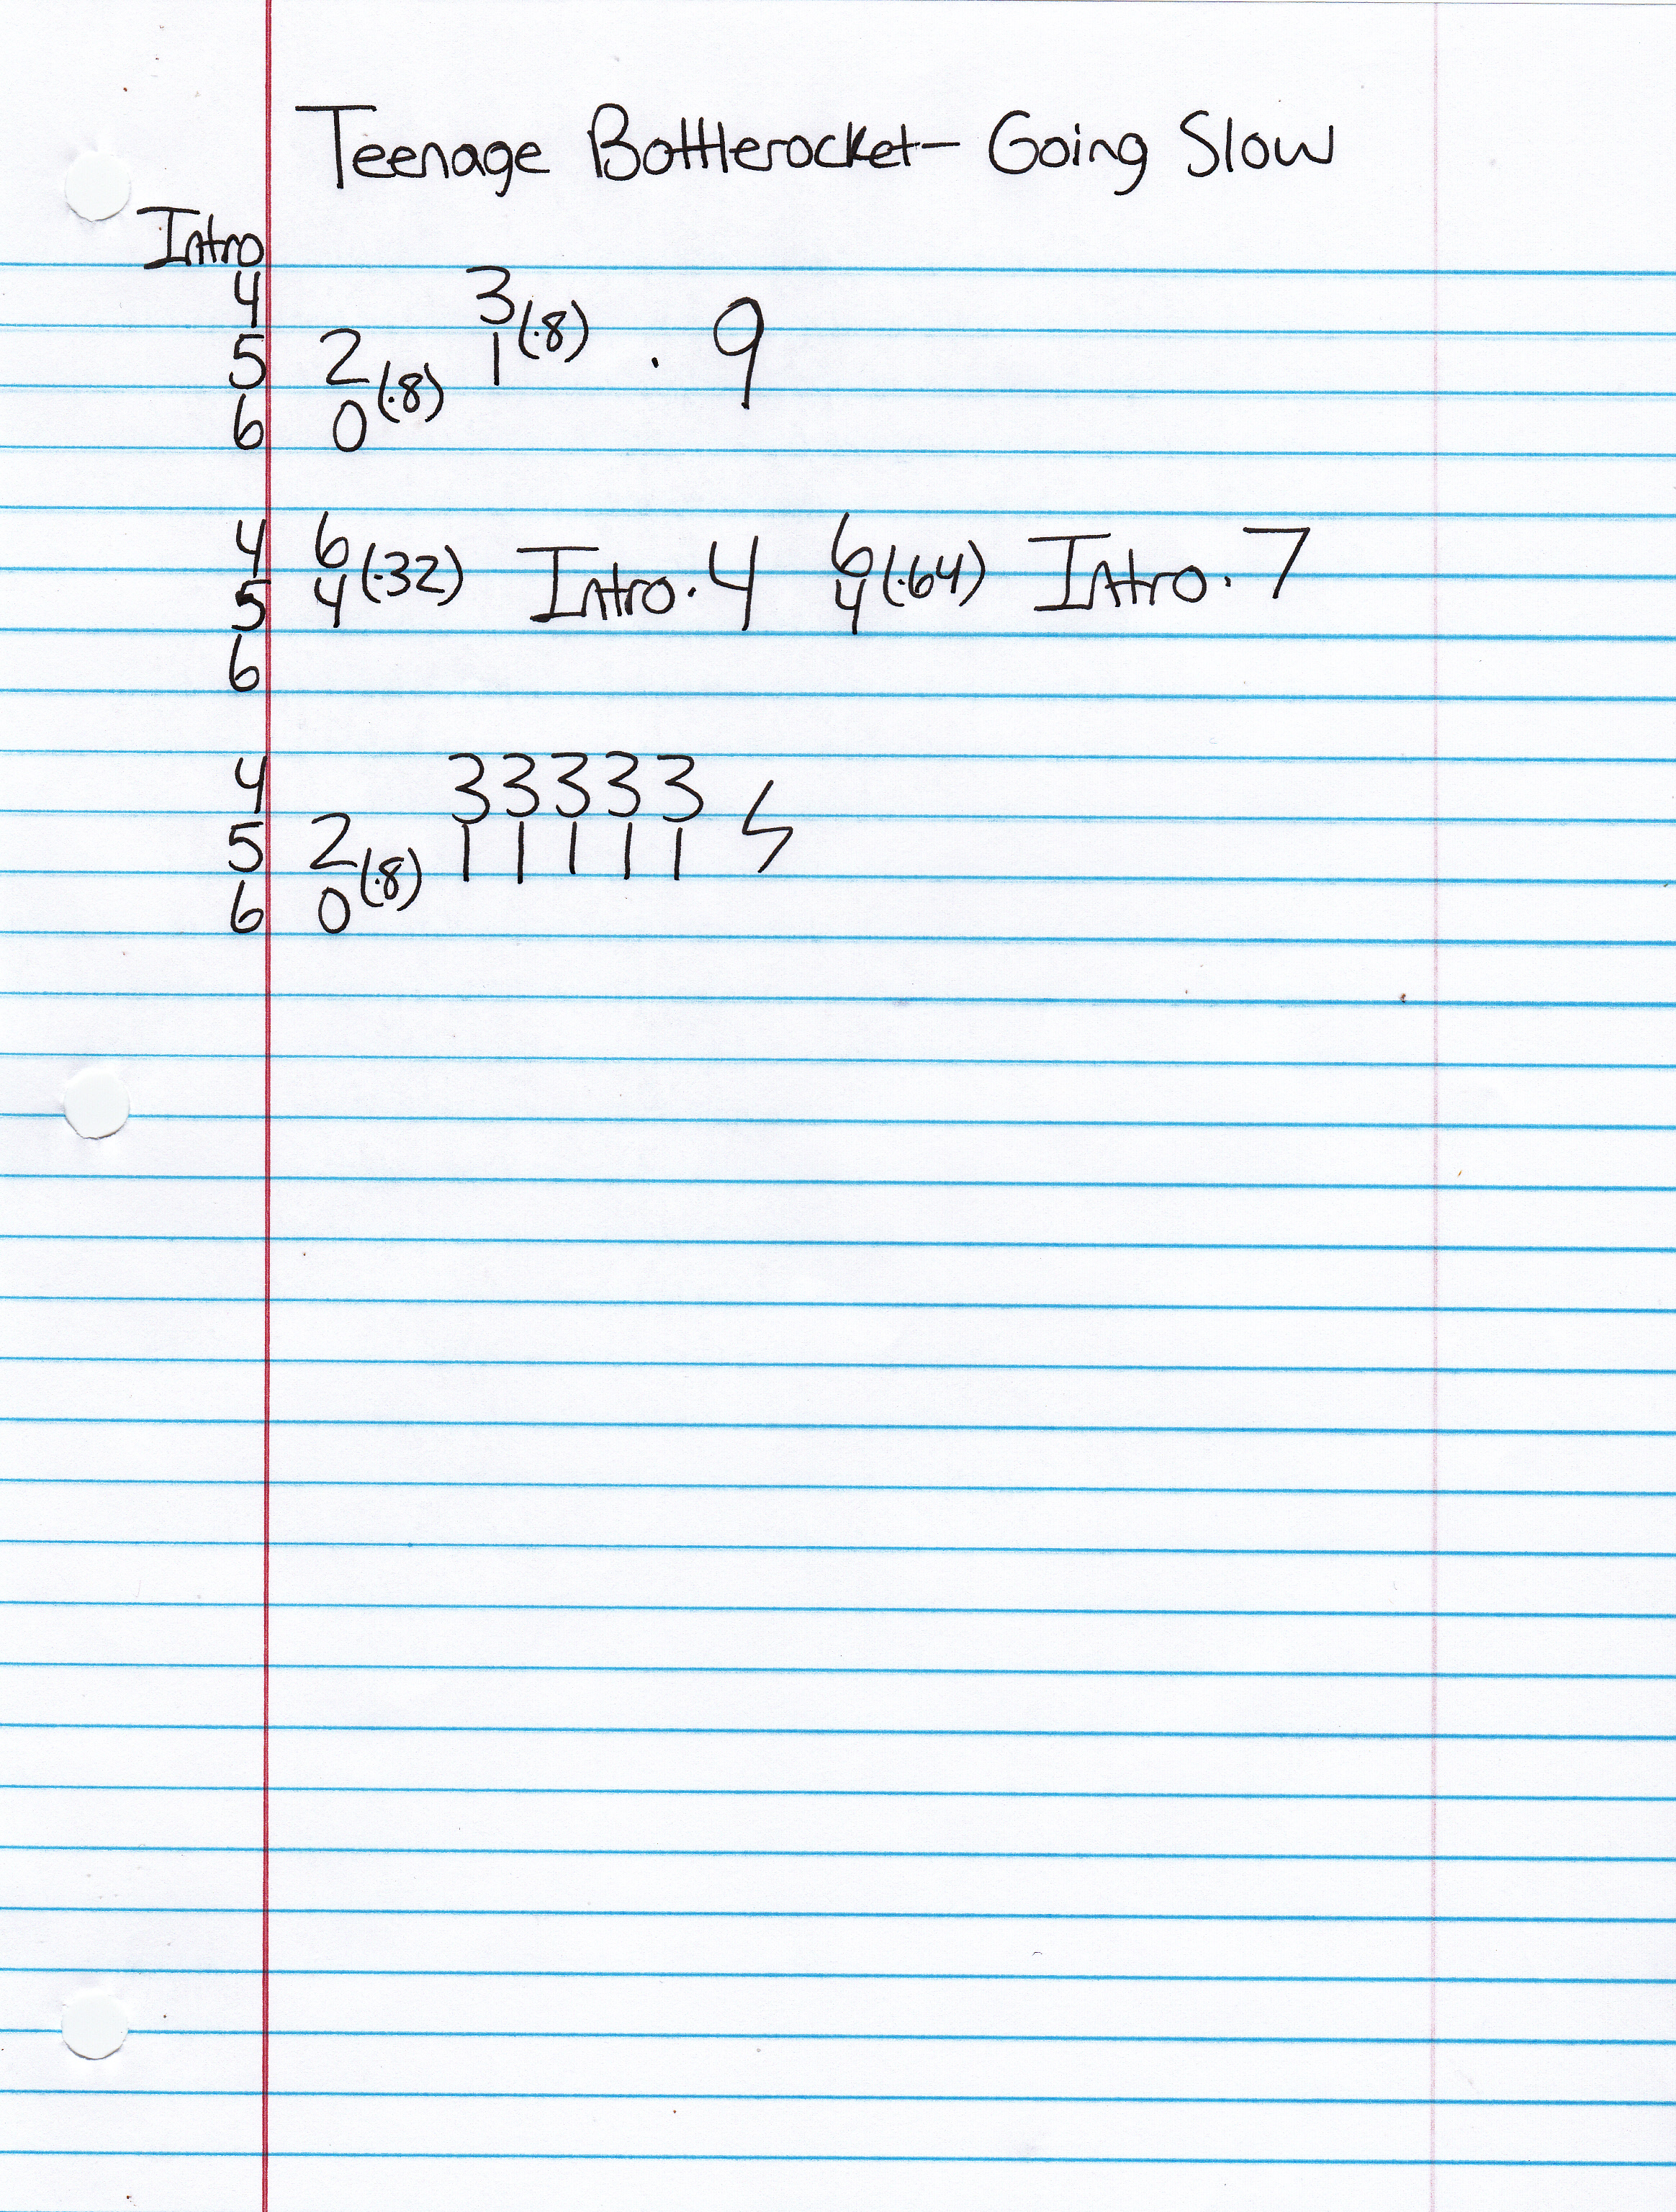 Teenage Bottlerocket- Going Slow
Intro
4 3
5 2 (·8) 1 (·8) · 9
6 0
4 6 (·32) Intro · 4 6 (·64) Intro · 7
5 4 4
6
4 3 3 3 3 3
5 2 (·8) 1 1 1 1 1
6 0